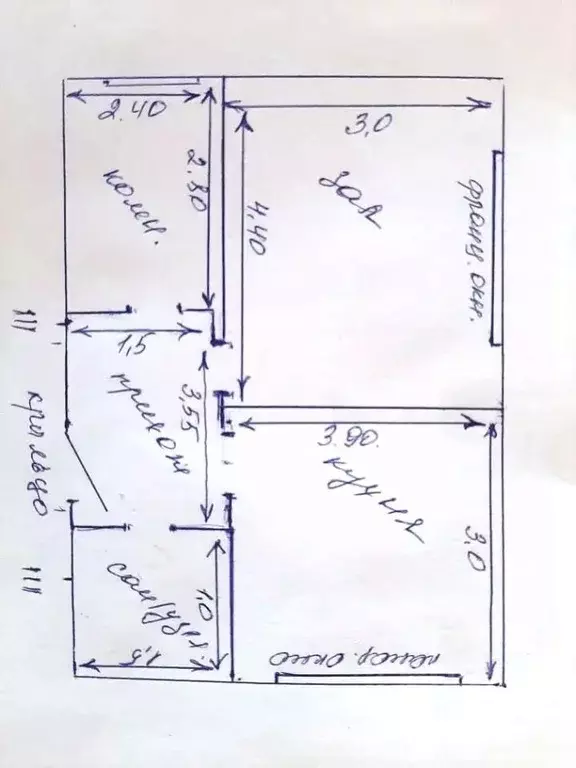 2.40
3,0
2.80
зал
4.40
франц. окн.
1,5
прихож
3,55
крыльцо
3.90.
кухня
3,0
1,0
сан/узел.
1,5